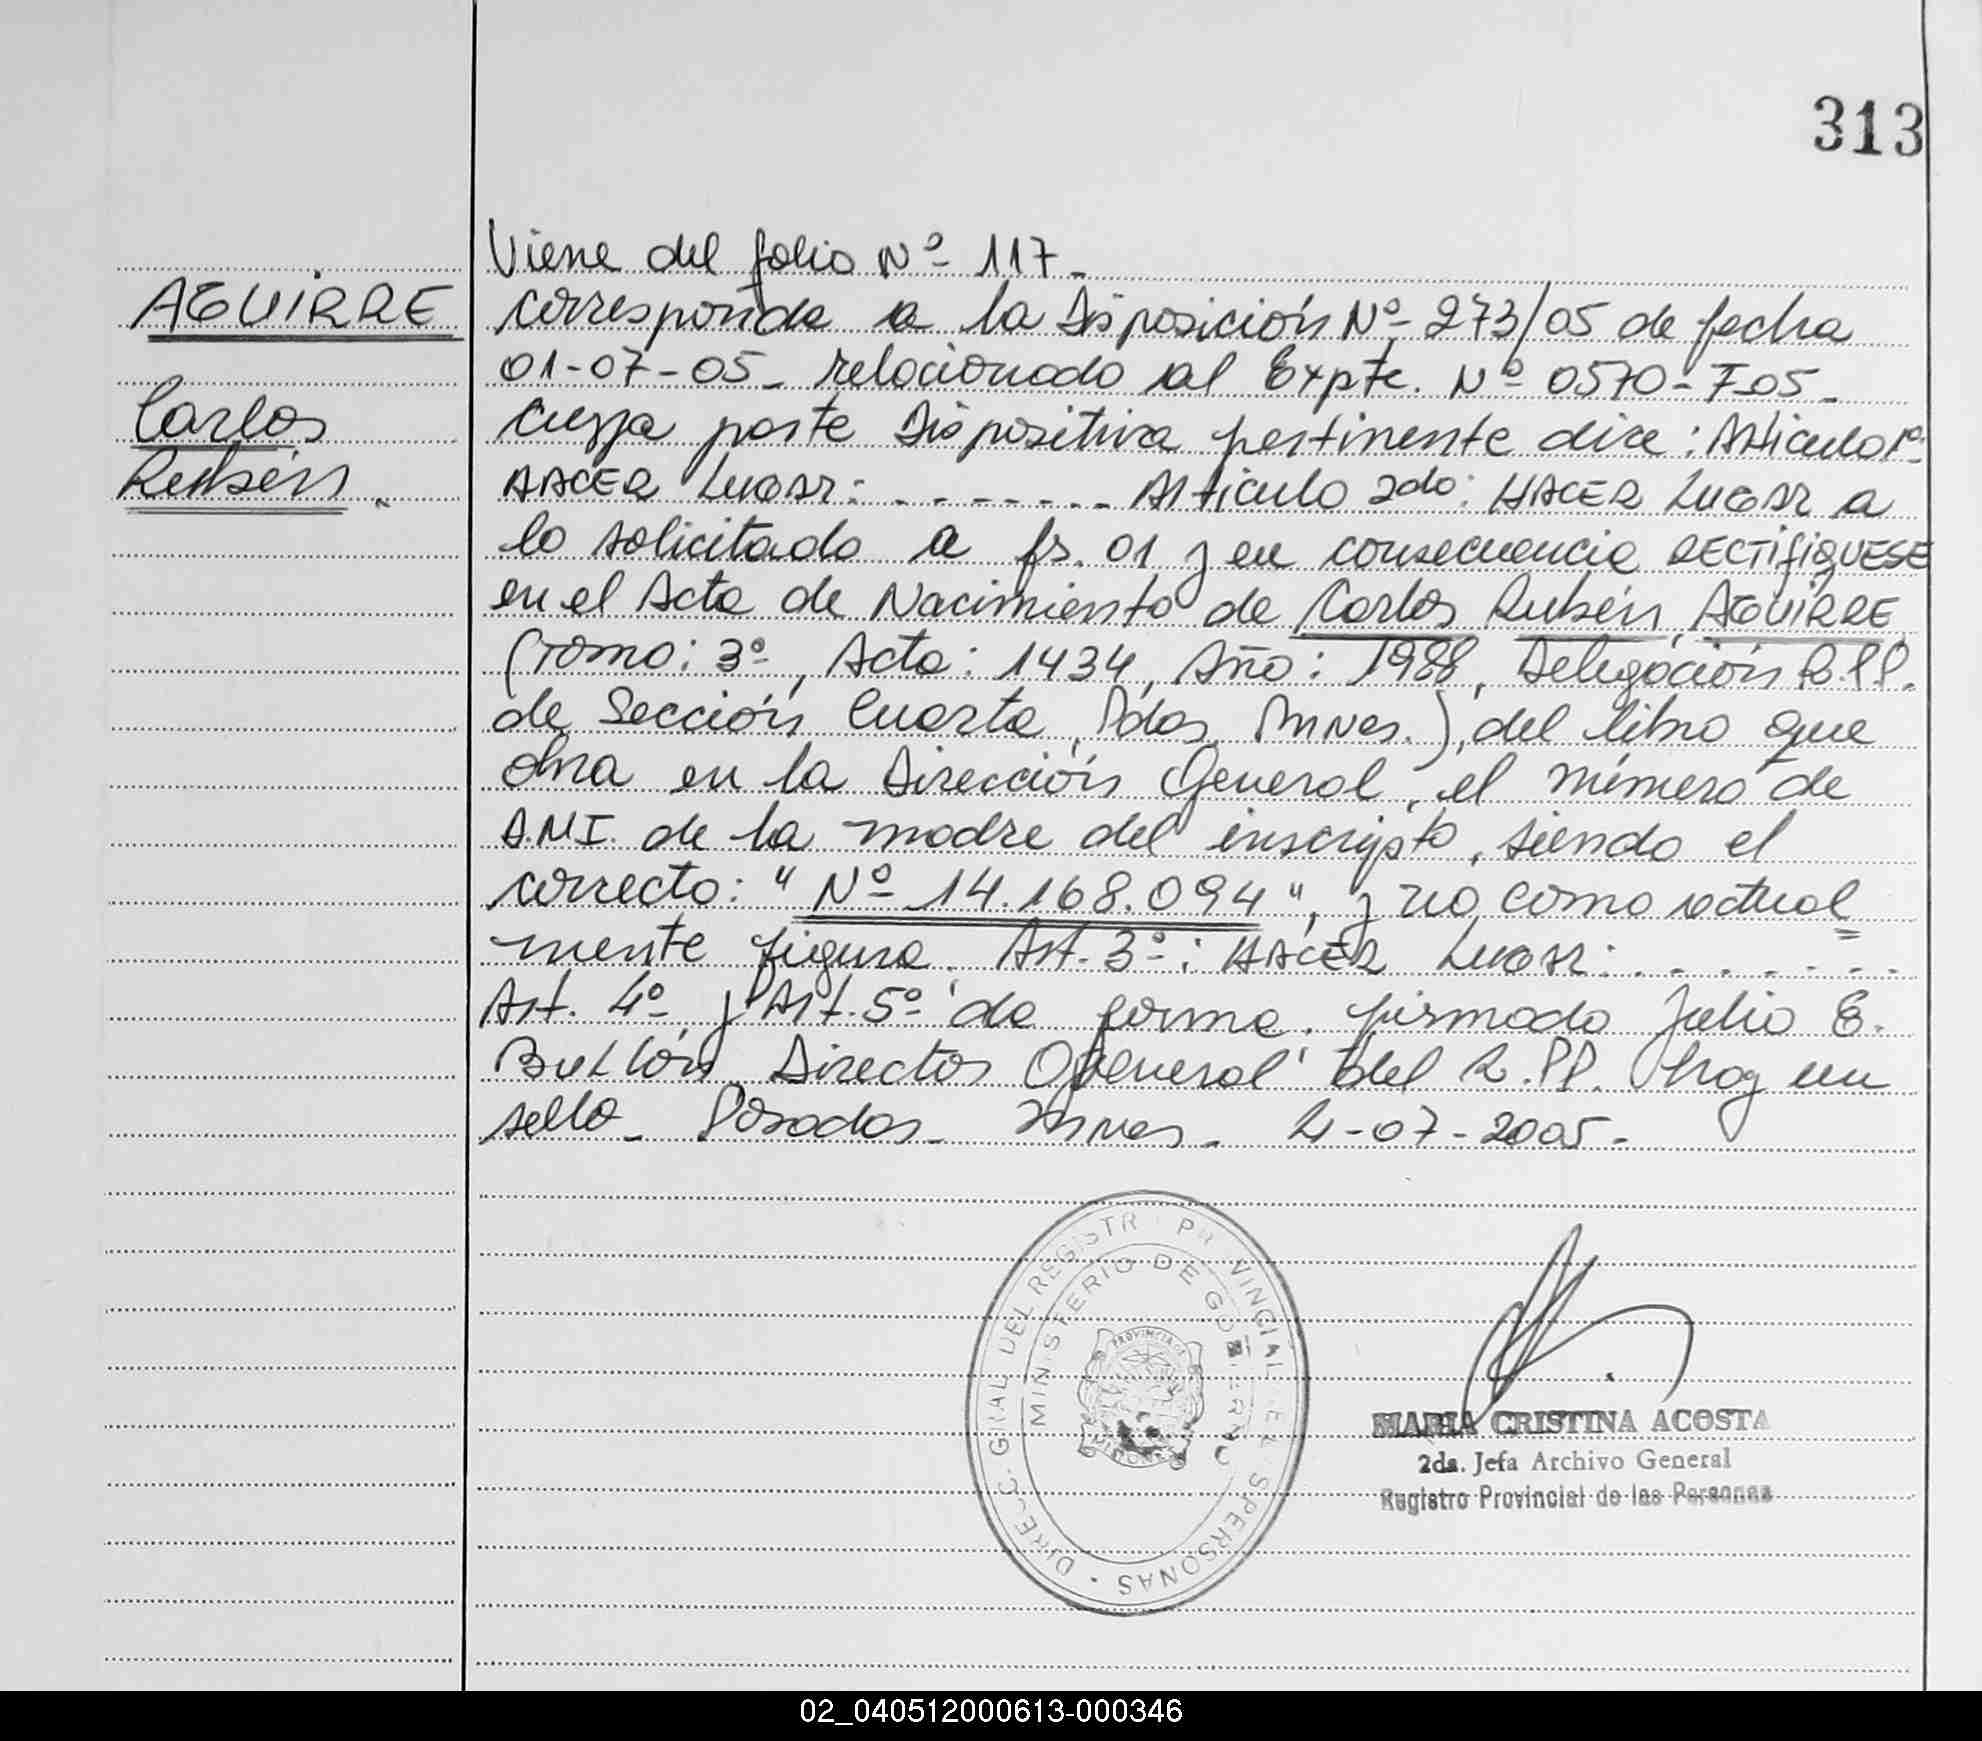 313
Viene del folio Nº 117.
AGUIRRE
corresponde a la Disposición Nº 273/05 de fecha
01-07-05- relacionado al Expte. Nº 0570-F-05-
Carlos
cuya parte Dispositiva pertinente dice: Articulo 1º:
Rubén.
HACER LUGAR: - - - - - - - - Articulo 2do: HACER LUGAR a
lo solicitado a fs. 01 y en consecuencia RECTIFIQUESE
en el Acta de Nacimiento de Carlos Rubén, AGUIRRE
(Tomo: 3º, Acta: 1434, Año: 1988, Delegación R.PP.
de Sección Cuarta, Pdas, Mnes.), del libro que
obra en la Dirección General, el número de
D.N.I. de la madre del inscripto, siendo el
correcto: "Nº 14.168.094", y no como actual
mente figura. Art. 3º: HACER LUGAR: . . . . . . .
Art. 4º y Art. 5º de forma. firmado Julio E.
Bullón Director General del R.PP. hay un
sello- Posadas- Mnes- 21-07-2005-
DIRECC. GRAL. DEL REGISTR PR VINCIAL E LA S PERSONAS
MINISTERIO DE GOBIERNO
PROVINCIA DE
MISIONES
MARIA CRISTINA ACOSTA
2da. Jefa Archivo General
Registro Provincial de las Personas
02_040512000613-000346